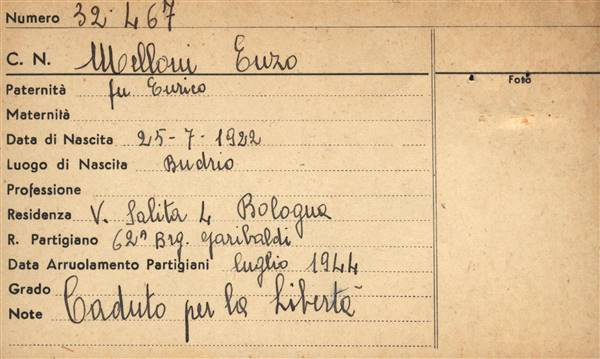 Numero 32.467
C. N. Melloni Enzo
Foto
Paternità fu Enrico
Maternità
Data di Nascita 25-7-1922
Luogo di Nascita Budrio
Professione
Residenza V. Salita 4 Bologna
R. Partigiano 62ª Brg. Garibaldi
Data Arruolamento Partigiani luglio 1944
Grado
Note Caduto per la Libertà